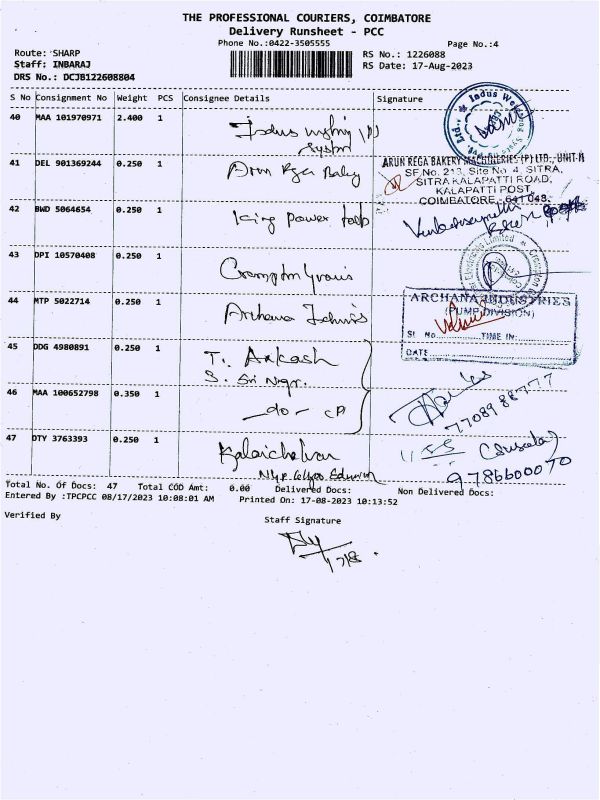 THE PROFESSIONAL COURIERS, COIMBATORE
Delivery Runsheet - PCC
Phone No.:0422-3505555 Page No.:4
Route: SHARP RS No.: 1226088
Staff: INBARAJ RS Date: 17-Aug-2023
DRS No.: DCJB122608804
S No Consignment No Weight PCS Consignee Details Signature
40 MAA 101970971 2.400 1 Indus
System
41 DEL 901369244 0.250 1 Arun Rega Bakey
ARUN REGA BAKERY MACHINERIES (P) LTD., UNIT-II
SF.No. 213, Site No. 4, SITRA,
SITRA KALAPATTI ROAD,
KALAPATTI POST,
COIMBATORE - 641 048.
42 BWD 5064654 0.250 1 Icing power tools
43 DPI 10570408 0.250 1 Crompton Greaves
44 MTP 5022714 0.250 1 Archana
ARCHANA INDUSTRIES
(PUMP DIVISION)
Sl No. TIME IN:
DATE
45 DDG 4980891 0.250 1 T. Aakash
S. Sri Nagr.
46 MAA 100652798 0.350 1 -do- CP
77089 88777
47 DTY 3763393 0.250 1 Kalaichelvan
9786600070
Total No. Of Docs: 47 Total COD Amt: 0.00 Delivered Docs: Non Delivered Docs:
Entered By :TPCPCC 08/17/2023 10:08:01 AM Printed On: 17-08-2023 10:13:52
Verified By Staff Signature